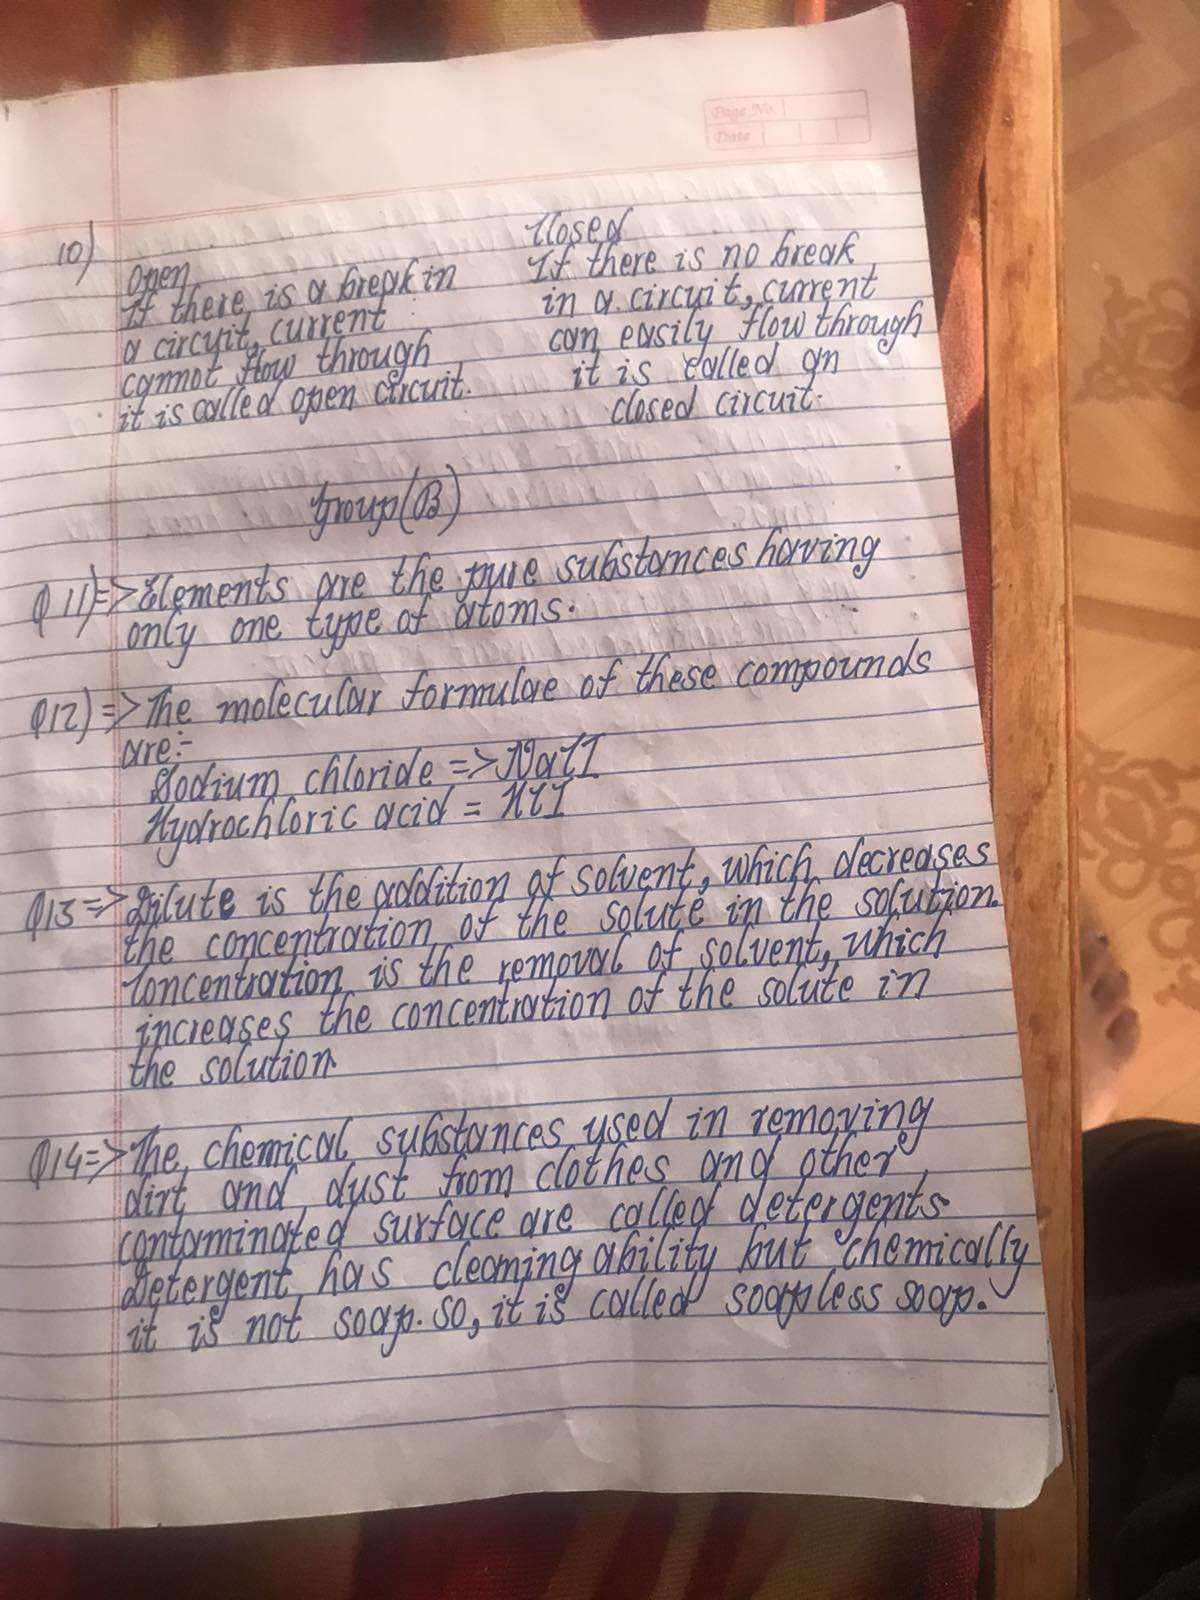 Page No.
Date
10)
Open
If there is a break in
a circuit, current
cannot flow through
it is called open circuit.
Closed
If there is no break
in a circuit, current
can easily flow through
it is called an
closed circuit.
Group (B)
Q 11) => Elements are the pure substances having
only one type of atoms.
Q12) => The molecular formulae of these compounds
are:-
Sodium chloride => NaCI
Hydrochloric acid = HCI
Q13 => Dilute is the addition of solvent, which decreases
the concentration of the solute in the solution.
Concentration is the removal of solvent, which
increases the concentration of the solute in
the solution.
Q14 => The chemical substances used in removing
dirt and dust from clothes and other
contaminated surface are called detergents.
Detergent has cleaning ability but chemically
it is not soap. so, it is called soapless soap.